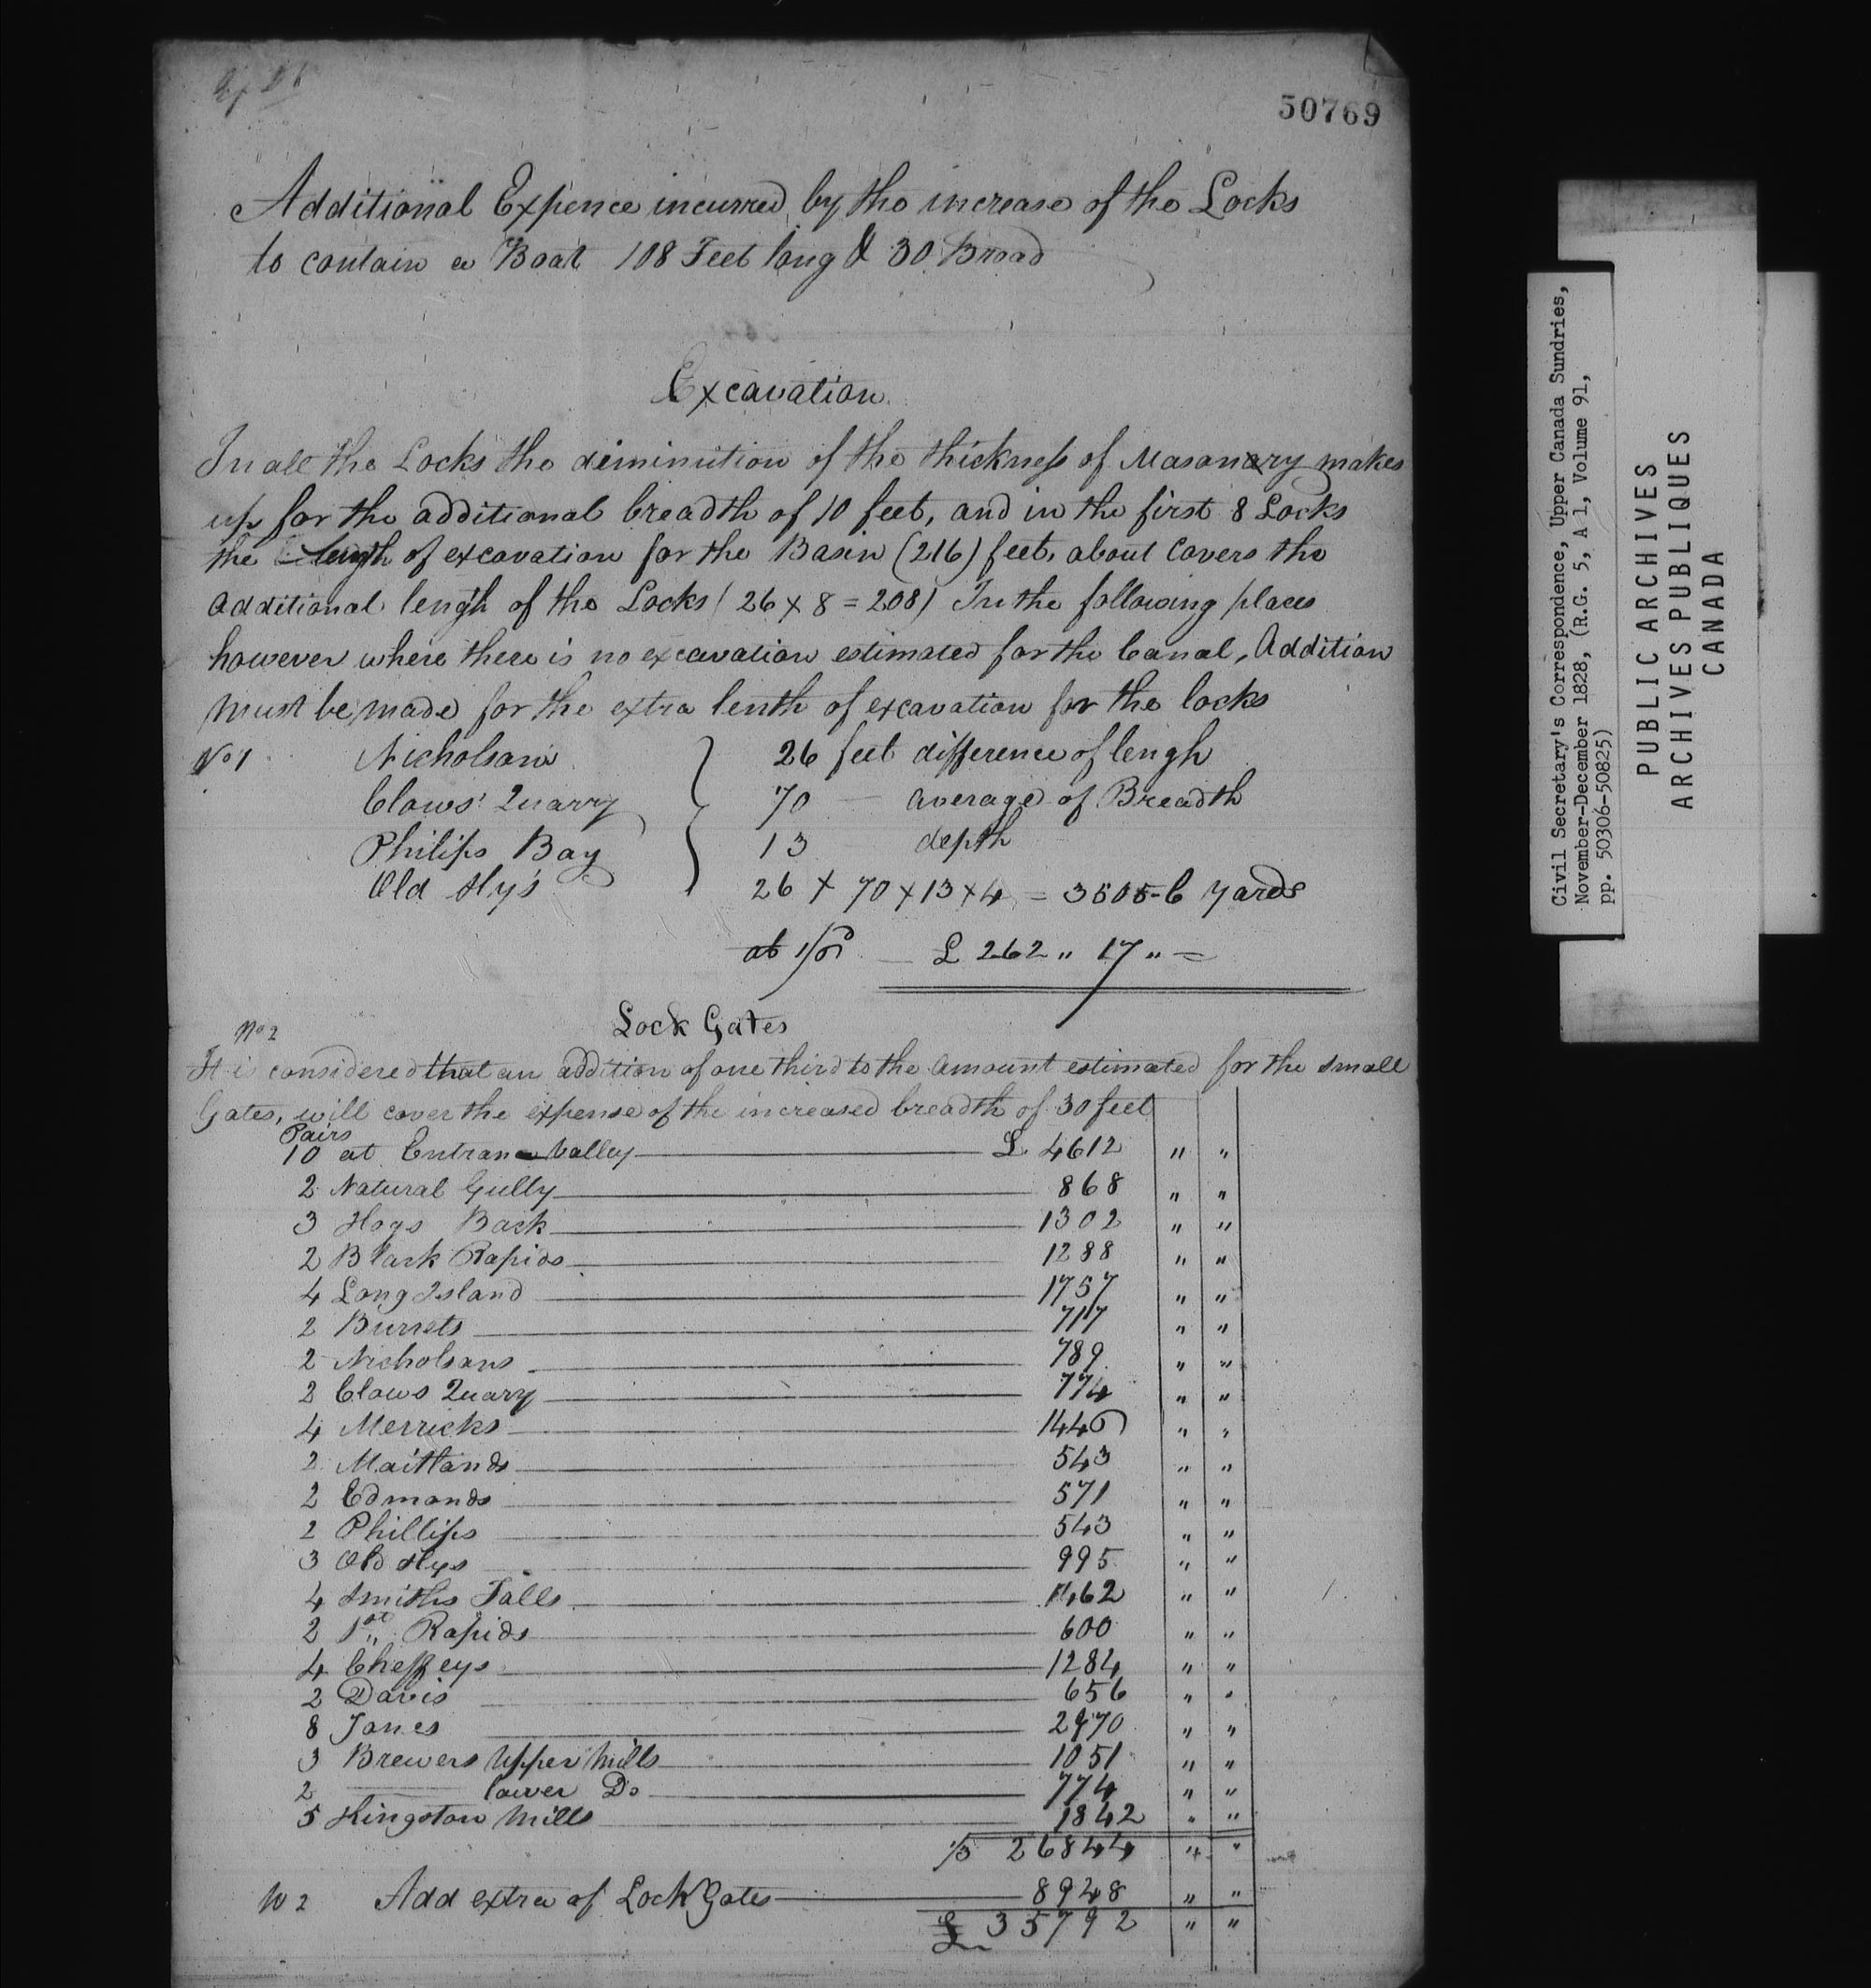 50769
Additional Expence incurred by the increase of the Locks
to contain a Boat 108 Feet long & 30 Broad
Excavation
In all the Locks the diminution of the thickness of Masonary makes
up for the additional breadth of 10 feet, and in the first 8 Locks
the length of excavation for the Basin (216) feet, about Covers the
additional lengh of the Locks (26 x 8 = 208) In the following places
however where there is no excavation estimated for the Canal, Addition
must be made for the extra lenth of excavation for the locks
No 1 Nicholsons 26 feet difference of lengh
Claws' Quarry 70 — average of Breadth
Philips Bay 13 depth
Old Slys 26 x 70 x 13 x 4 = 3505-6 yards
at 1/6 — £ 262 " 17 " =
No 2 Lock Gates
It is considered that an addition of one third to the amount estimated for the small
Gates, will cover the expense of the increased breadth of 30 feet
Pairs
10 at Entrance Valley £ 4612 " "
2 Natural Gully 868 " "
3 Hogs Back 1302 " "
2 Black Rapids 1288 " "
4 Long Island 1757 " "
2 Burrets 717 " "
2 Nicholsons 789 " "
2 Claws Quary 774 " "
4 Merricks 1446 " "
2 Maitlands 543 " "
2 Edmonds 571 " "
2 Phillips 543 " "
3 Old Slys 995 " "
4 Smiths Falls 1462 " "
2 1st " Rapids 600 " "
4 Cheffeys 1284 " "
2 Davis 656 " "
8 Jones 2970 " "
3 Brewers Upper Mills 1051 " "
2 —— lower Do 774 " "
5 Kingston Mills 1842 " "
1/3 26844 " "
No 2 Add extra of Lock Gates 8948 " "
£ 35792 " "
Civil Secretary's Correspondence, Upper Canada Sundries,
November-December 1828, (R.G. 5, A 1, Volume 91,
pp. 50306-50825)
PUBLIC ARCHIVES
ARCHIVES PUBLIQUES
CANADA